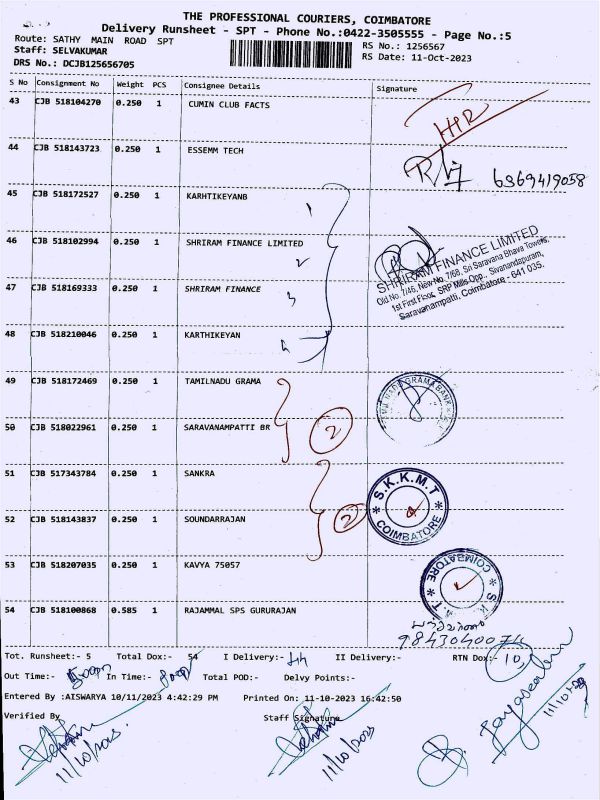 THE PROFESSIONAL COURIERS, COIMBATORE
Delivery Runsheet - SPT - Phone No.:0422-3505555 - Page No.:5
Route: SATHY MAIN ROAD SPT
RS No.: 1256567
Staff: SELVAKUMAR
RS Date: 11-Oct-2023
DRS No.: DCJB125656705
S No Consignment No Weight PCS Consignee Details Signature
43 CJB 518104270 0.250 1 CUMIN CLUB FACTS
44 CJB 518143723 0.250 1 ESSEMM TECH
6369419058
45 CJB 518172527 0.250 1 KARHTIKEYANB 1
46 CJB 518102994 0.250 1 SHRIRAM FINANCE LIMITED 2
SHRIRAM FINANCE LIMITED
Old No. 7/46, New No. 7/68, Sri Saravana Bhava Towers,
1st First Floor, SRP Mills Opp., Sivanandapuram,
Saravanampatti, Coimbatore - 641 035.
47 CJB 518169333 0.250 1 SHRIRAM FINANCE 3
48 CJB 518210046 0.250 1 KARTHIKEYAN 4
49 CJB 518172469 0.250 1 TAMILNADU GRAMA
50 CJB 518022961 0.250 1 SARAVANAMPATTI BR 2
51 CJB 517343784 0.250 1 SANKRA
S.K.K.M.T
COIMBATORE
52 CJB 518143837 0.250 1 SOUNDARRAJAN 2
53 CJB 518207035 0.250 1 KAVYA 75057
COIMBATORE
54 CJB 518100868 0.585 1 RAJAMMAL SPS GURURAJAN
9843040074
Tot. Runsheet:- 5 Total Dox:- 54 I Delivery:- 44 II Delivery:- RTN Dox:- 10
Out Time:- In Time:- Total POD:- Delvy Points:-
Entered By :AISWARYA 10/11/2023 4:42:29 PM Printed On: 11-10-2023 16:42:50
Verified By Staff Signature
11/10/2023
11/10/2023